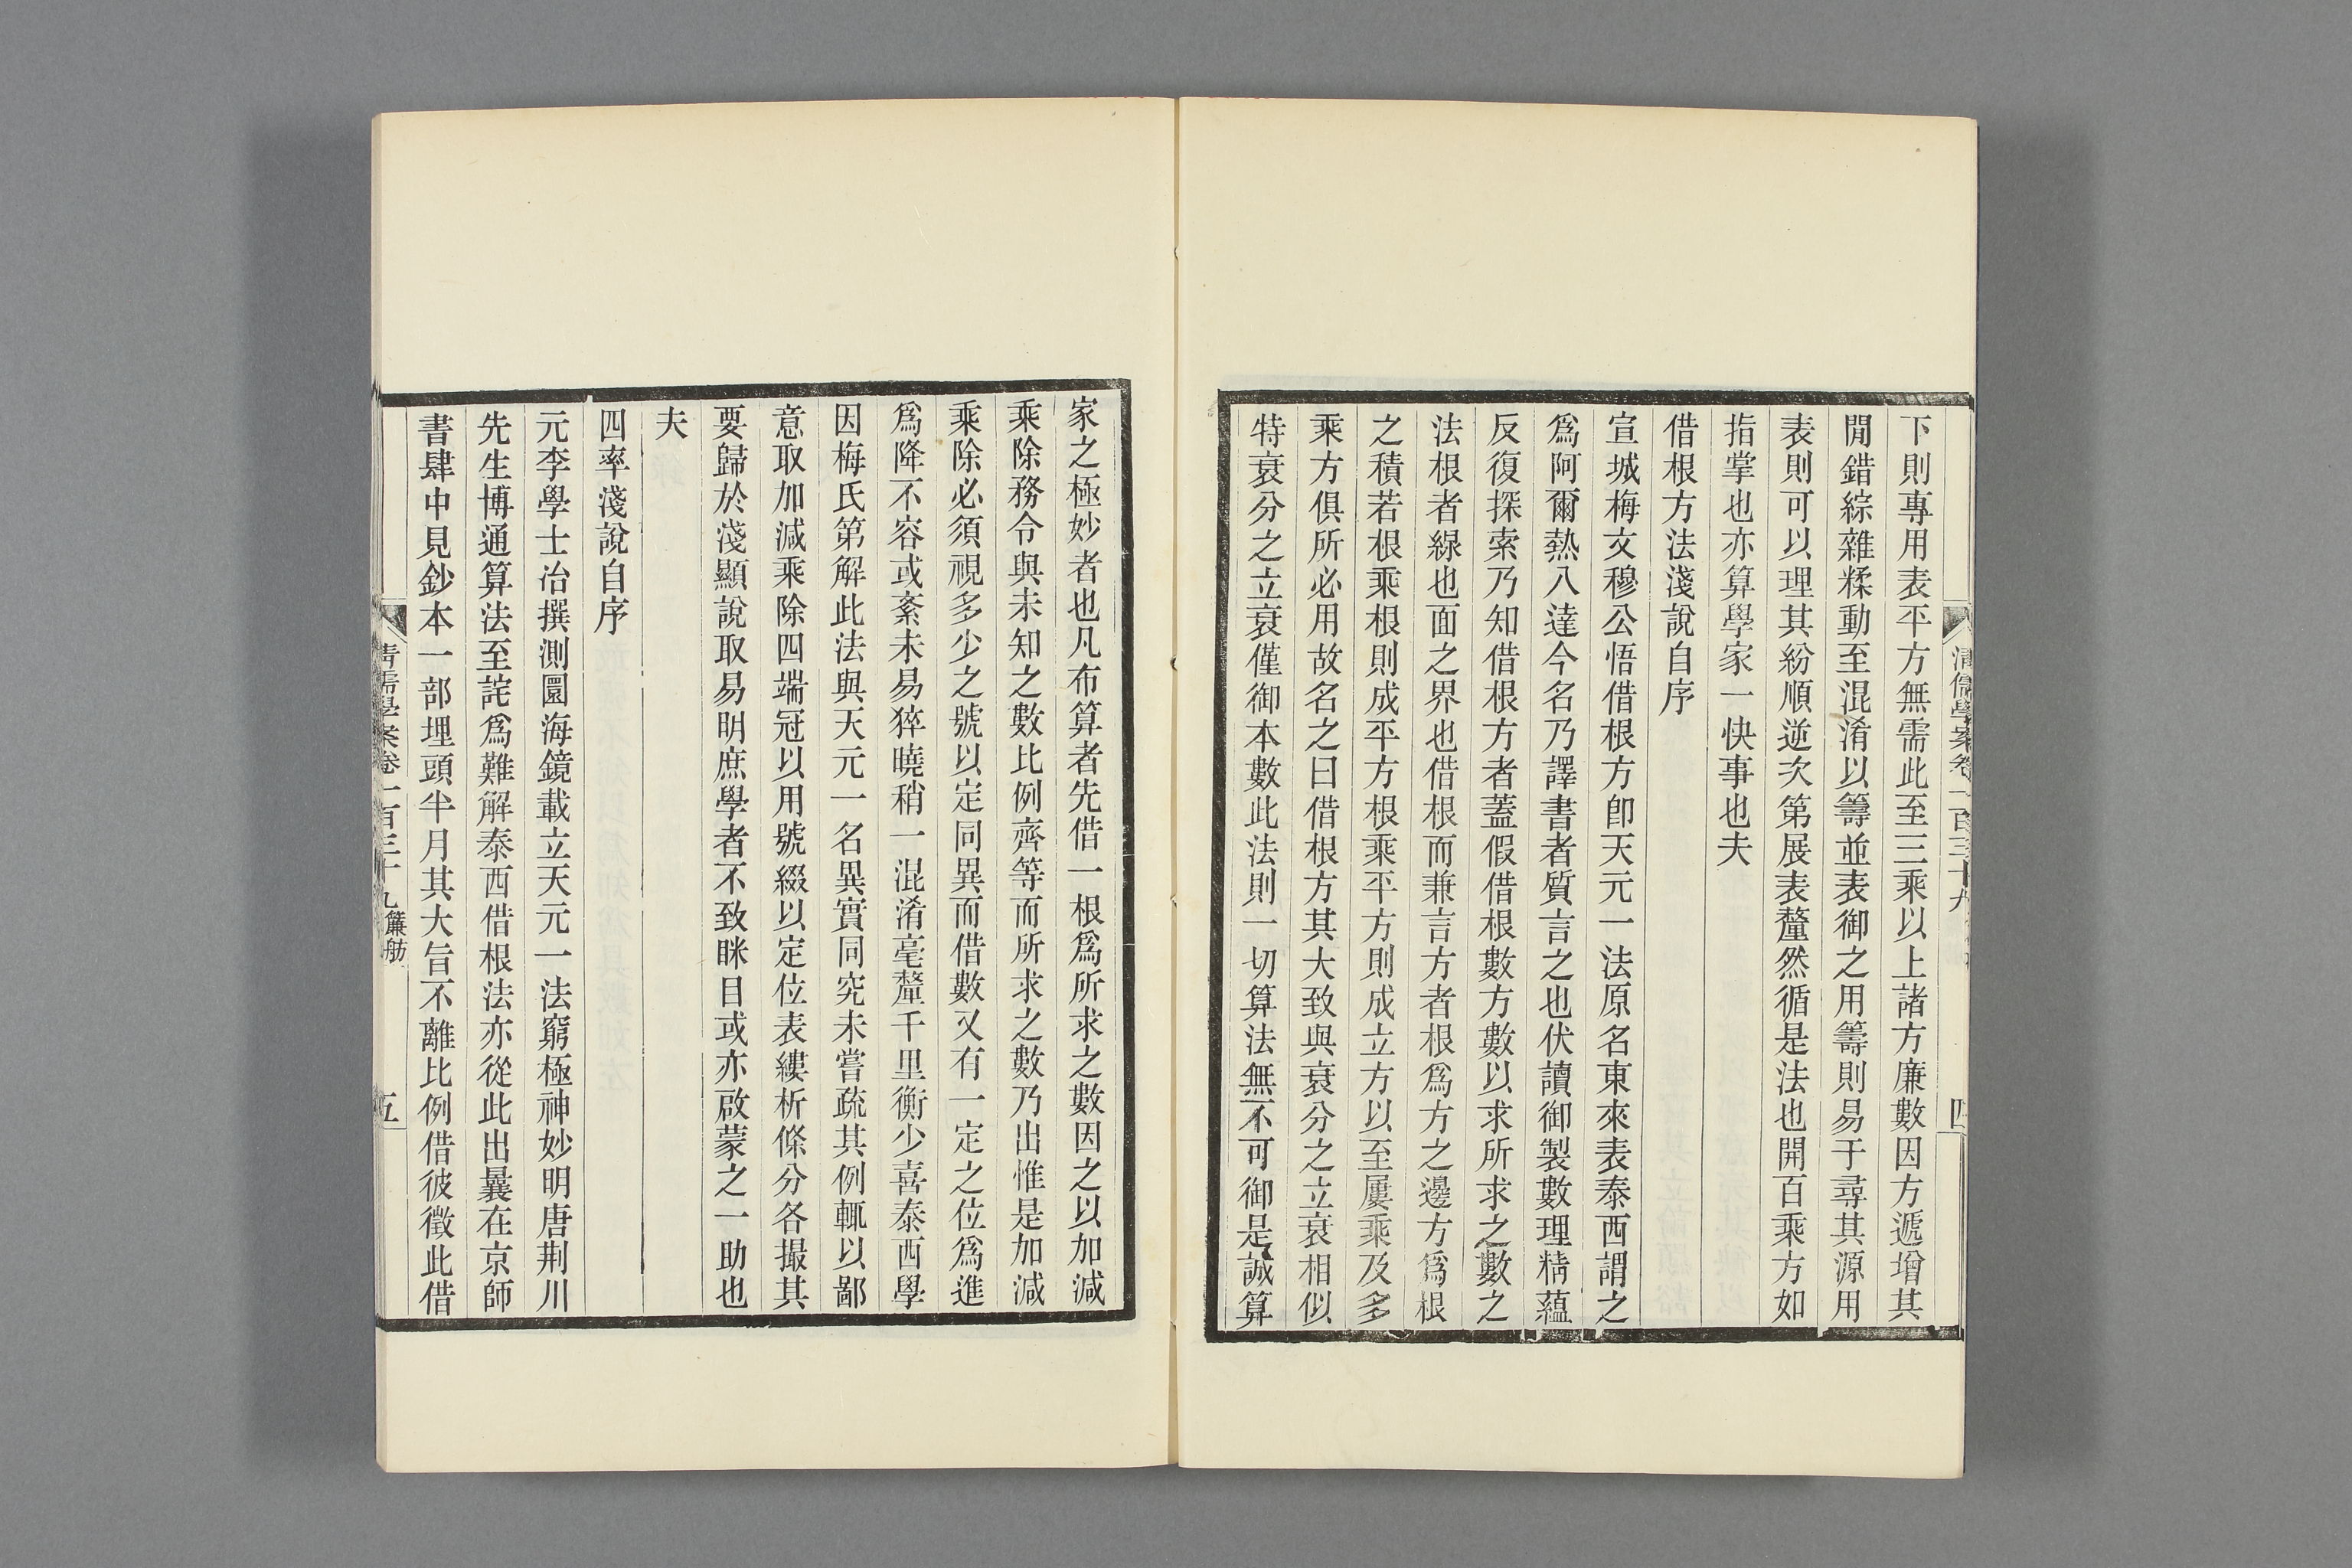 清儒學案卷一百三十九
四
下則專用表平方無需此至三乘以上諸方廉數因方遞增其
閒錯綜雜糅動至混淆以籌並表御之用籌則易于尋其源用
表則可以理其紛順逆次第展表釐然循是法也開百乘方如
指掌也亦算學家一快事也夫
借根方法淺說自序
宣城梅文穆公悟借根方卽天元一法原名東來表泰西謂之
爲阿爾熱八達今名乃譯書者質言之也伏讀御製數理精蘊
反復探索乃知借根方者蓋假借根數方數以求所求之數之
法根者線也面之界也借根而兼言方者根爲方之邊方爲根
之積若根乘根則成平方根乘平方則成立方以至屢乘及多
乘方俱所必用故名之曰借根方其大致與衰分之立衰相似
特衰分之立衰僅御本數此法則一切算法無不可御是誠算
家之極妙者也凡布算者先借一根爲所求之數因之以加減
乘除務令與未知之數比例齊等而所求之數乃出惟是加減
乘除必須視多少之號以定同異而借數又有一定之位爲進
爲降不容或紊未易猝曉稍一混淆毫釐千里衡少喜泰西學
因梅氏第解此法與天元一名異實同究未嘗疏其例輒以鄙
意取加減乘除四端冠以用號綴以定位表縷析條分各撮其
要歸於淺顯說取易明庶學者不致眯目或亦啟蒙之一助也
夫
四率淺說自序
元李學士冶撰測圜海鏡載立天元一法窮極神妙明唐荆川
先生博通算法至詫爲難解泰西借根法亦從此出曩在京師
書肆中見鈔本一部埋頭半月其大旨不離比例借彼徵此借
清儒學案卷一百三十九 簾舫
五